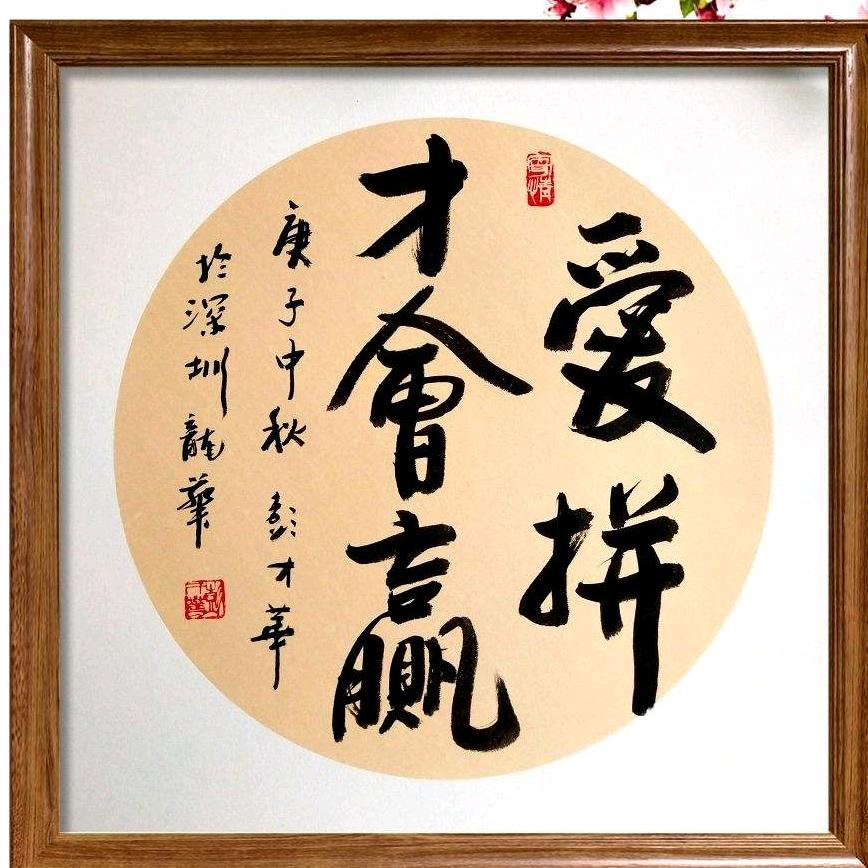 愛拼
才會贏
庚子中秋 彭才華
於深圳龍華